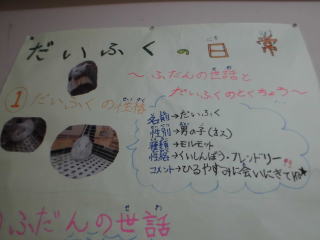 だいふくの日常
にち
じょう
～ふだんの世話と
だいふくのとくちょう～
①だいふくの性格
せいかく
名前→だいふく
性別→男の子(オス)
種類→モルモット
性格→くいしんぼう・フレンドリー
コメント→ひるやすみに会いにきてね
ふだんの世話
せわ